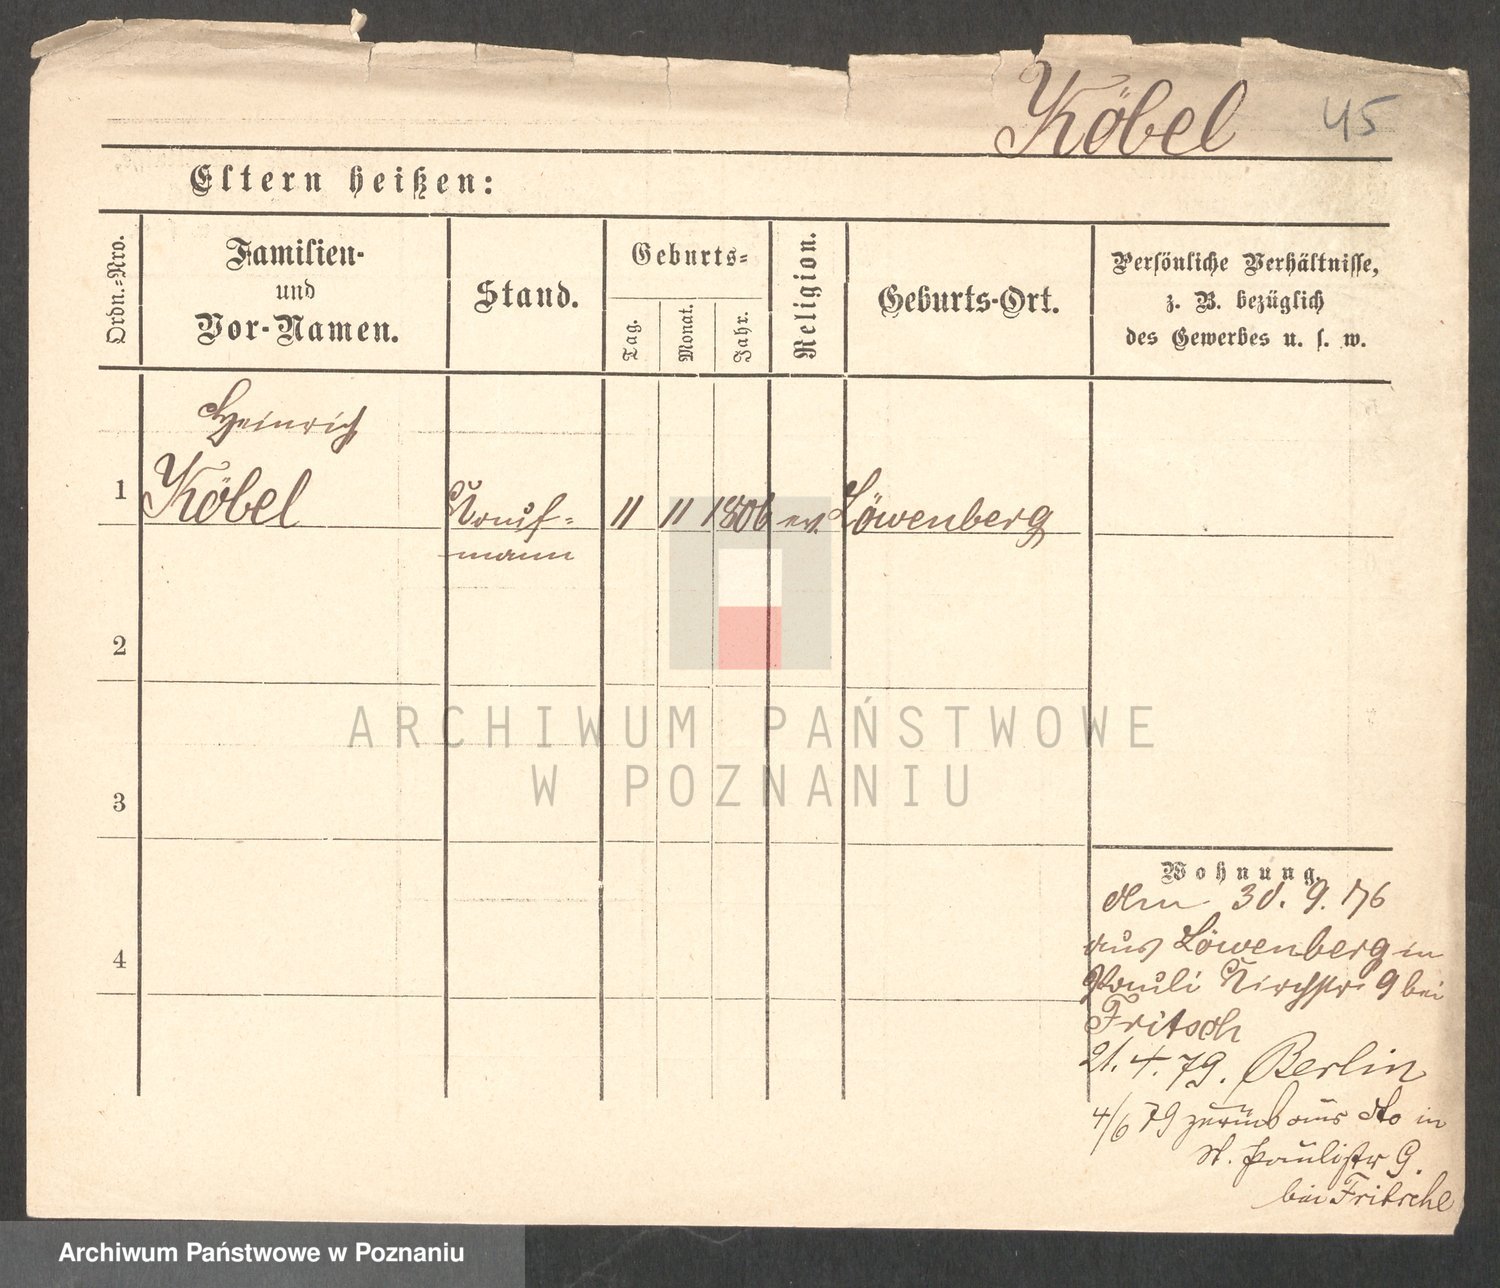 Köbel 45
Eltern heißen:
Ordn.-Nro.
Familien-
und
Vor-Namen.
Stand.
Geburts-
Tag.
Monat.
Jahr.
Religion.
Geburts-Ort.
Persönliche Verhältnisse,
z. B. bezüglich
des Gewerbes u. s. w.
Heinrich
1 Köbel Kauf- 11 11 1806 ev. Löwenberg
mann
2
3
4
Wohnung.
den 30. 9. 76
aus Löwenberg in
Pauli Kirchstr 9 bei
Fritsch
21. 4. 79. Berlin
4/6 79 zurück aus dto in
St. Paulistr 9.
bei Fritsche
ARCHIWUM PAŃSTWOWE
W POZNANIU
Archiwum Państwowe w Poznaniu